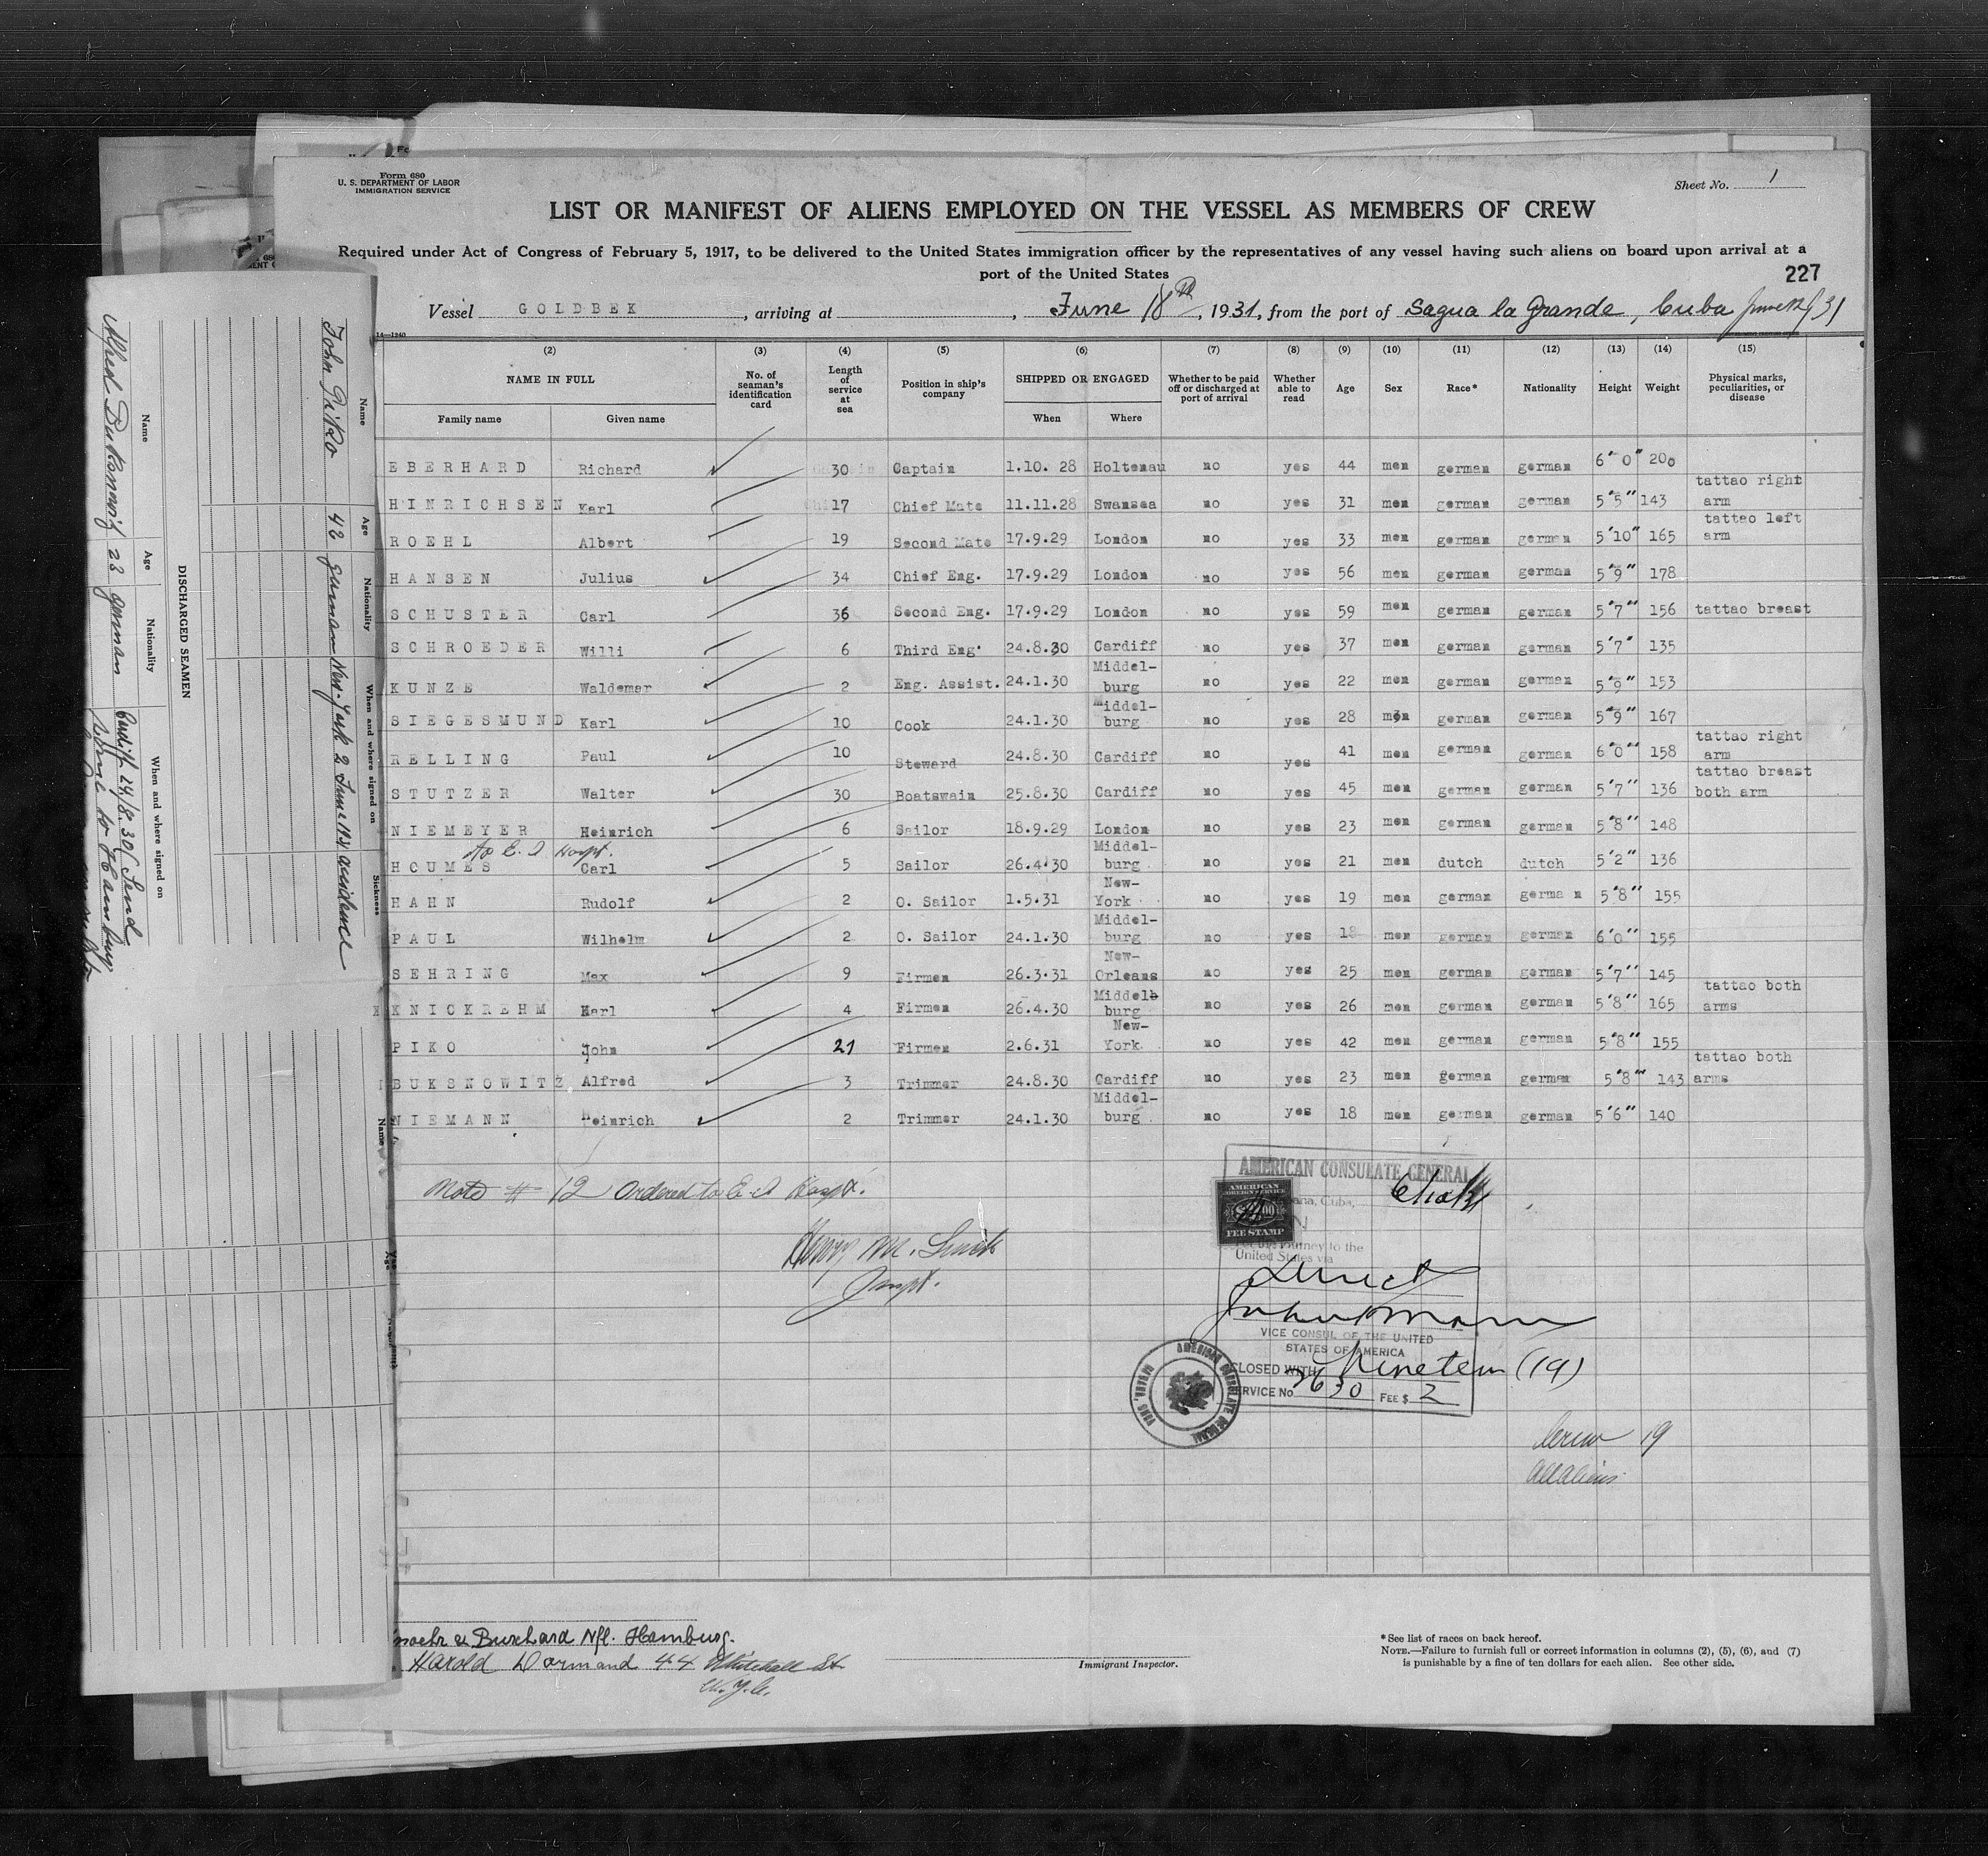 Form 680
U. S. DEPARTMENT OF LABOR
IMMIGRATION SERVICE
Sheet No. 1
LIST OR MANIFEST OF ALIENS EMPLOYED ON THE VESSEL AS MEMBERS OF CREW
Required under Act of Congress of February 5, 1917, to be delivered to the United States immigration officer by the representatives of any vessel having such aliens on board upon arrival at a
port of the United States
227
Vessel GOLDBEK, arriving at , June 18th, 1931, from the port of Sagua la Grande, Cuba June 12/31
14—1240
(2) (3) (4) (5) (6) (7) (8) (9) (10) (11) (12) (13) (14) (15)
NAME IN FULL No. of seaman's identification card Length of service at sea Position in ship's company SHIPPED OR ENGAGED Whether to be paid off or discharged at port of arrival Whether able to read Age Sex Race* Nationality Height Weight Physical marks, peculiarities, or disease
Family name Given name When Where
EBERHARD Richard 30 Captain 1.10. 28 Holtenau no yes 44 men german german 6'0" 200
HINRICHSEN Karl 17 Chief Mate 11.11.28 Swansea no yes 31 men german german 5'5" 143 tattao right arm
ROEHL Albert 19 Second Mate 17.9.29 London no yes 33 men german german 5'10" 165 tattao left arm
HANSEN Julius 34 Chief Eng. 17.9.29 London no yes 56 men german german 5'9" 178
SCHUSTER Carl 36 Second Eng. 17.9.29 London no yes 59 men german german 5'7" 156 tattao breast
SCHROEDER Willi 6 Third Eng. 24.8.30 Cardiff no yes 37 men german german 5'7" 135
KUNZE Waldemar 2 Eng. Assist. 24.1.30 Middel-burg no yes 22 men german german 5'9" 153
SIEGESMUND Karl 10 Cook 24.1.30 Middel-burg no yes 28 men german german 5'9" 167
RELLING Paul 10 Steward 24.8.30 Cardiff no yes 41 men german german 6'0" 158 tattao right arm
STUTZER Walter 30 Boatswain 25.8.30 Cardiff no yes 45 men german german 5'7" 136 tattao breast both arm
NIEMEYER Heinrich 6 Sailor 18.9.29 London no yes 23 men german german 5'8" 148
To E. I Hospt.
HOUMES Carl 5 Sailor 26.4.30 Middel-burg no yes 21 men dutch dutch 5'2" 136
HAHN Rudolf 2 O. Sailor 1.5.31 New-York no yes 19 men german german 5'8" 155
PAUL Wilhelm 2 O. Sailor 24.1.30 Middel-burg no yes 18 men german german 6'0" 155
SEHRING Max 9 Firmen 26.3.31 New-Orleans no yes 25 men german german 5'7" 145
KNICKREHM Karl 4 Firmen 26.4.30 Middelb burg no yes 26 men german german 5'8" 165 tattao both arms
PIKO John 21 Firmen 2.6.31 New-York no yes 42 men german german 5'8" 155
BUKSNOWITZ Alfred 3 Trimmer 24.8.30 Cardiff no yes 23 men german german 5'8" 143 tattao both arms
NIEMANN Heinrich 2 Trimmer 24.1.30 Middel-burg no yes 18 men german german 5'6" 140
Note # 12 Ordered to E. I Hospt.
Henry M. Smith
Inspt.
AMERICAN CONSULATE GENERAL
AMERICAN
FOREIGN SERVICE
FEE STAMP
journey to the
United States via
Direct
VICE CONSUL OF THE UNITED
STATES OF AMERICA
CLOSED WITH Nineteen (19)
SERVICE No 2630 FEE $ 2
AMERICAN CONSULATE GENERAL
Crew 19
all aliens
& Burchard Nfl. Hamburg.
Harold Dormand 44 Whitehall St.
N.Y.C.
Immigrant Inspector.
*See list of races on back hereof.
NOTE.—Failure to furnish full or correct information in columns (2), (5), (6), and (7)
is punishable by a fine of ten dollars for each alien. See other side.
DISCHARGED SEAMEN
Name Age Nationality When and where signed on Sickness
John Piko 42 german New-York 2 June 1931 accidence
Name Age Nationality When and where signed on
Alfred Buksnowitz 23 german Cardiff 24/8.30 (Send
home to Hamburg